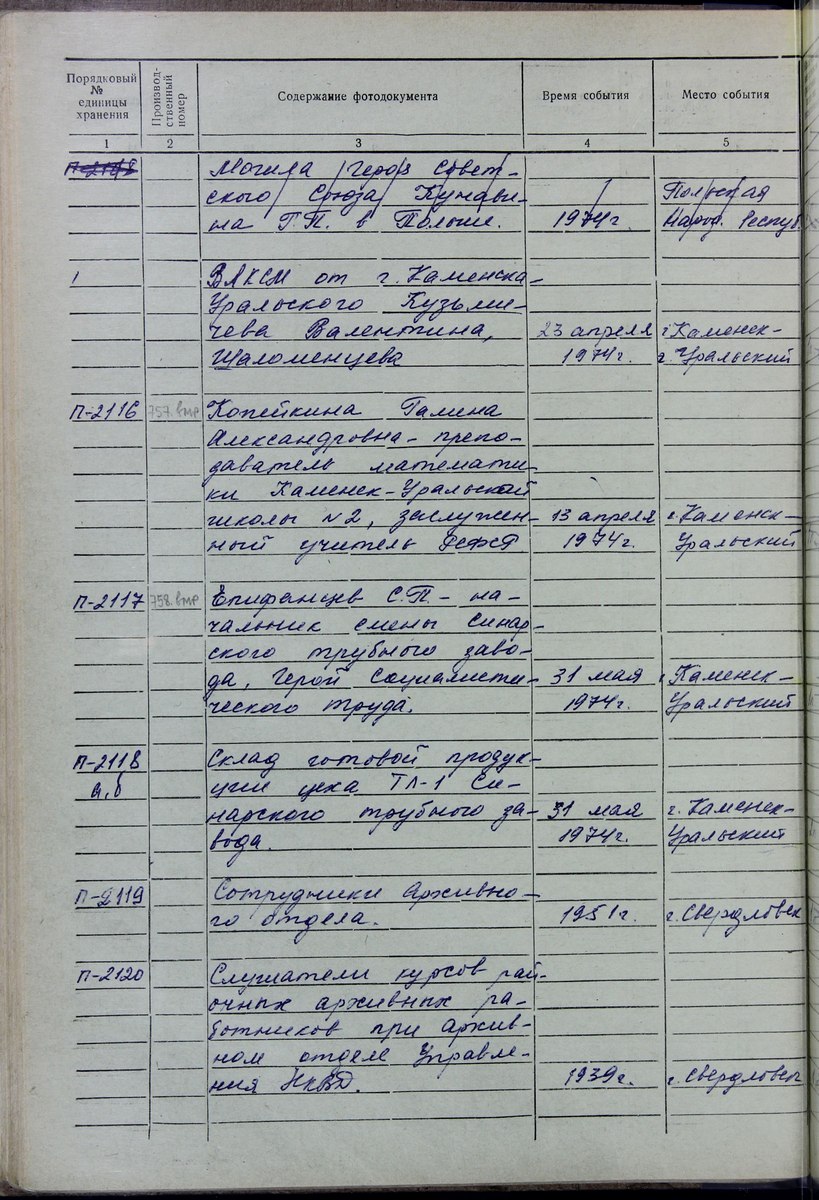 Порядковый № единицы хранения
Производственный номер
Содержание фотодокумента
Время события
Место события
1 2 3 4 5
Могила Героя Совет-
ского Союза Кунави- Польская
на Г.П. в Польше. 1974г. Народ. Респуб.
ВЛКСМ от г. Каменска-
Уральского Кузьми-
чева Валентина, 23 апреля г. Каменск-
Шаломенцева 1974г. Уральский
П-2116 757.вмр Копейкина Галина
Александровна - препо-
даватель математи-
ки Каменск-Уральской
школы №2, заслужен- 13 апреля г. Каменск-
ный учитель РСФСР 1974г. Уральский
П-2117 758.вмр Епифанцев С.П. - на-
чальник смены Синар-
ского трубного заво-
да, Герой Социалисти- 31 мая г. Каменск-
ческого труда. 1974г. Уральский
П-2118 Склад готовой продук-
а,б ции цеха ТЛ-1 Си-
нарского трубного за- 31 мая г. Каменск-
вода. 1974г. Уральский
П-2119 Сотрудники архивно-
го отдела. 1951г. г. Свердловск
П-2120 Слушатели курсов рай-
очных архивных ра-
ботников при архив-
ном отделе Управле-
ния НКВД. 1939г. г. Свердловск